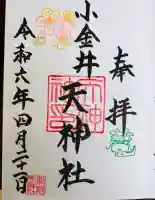 奉拝
小金井
天神社
令和六年四月二十一日